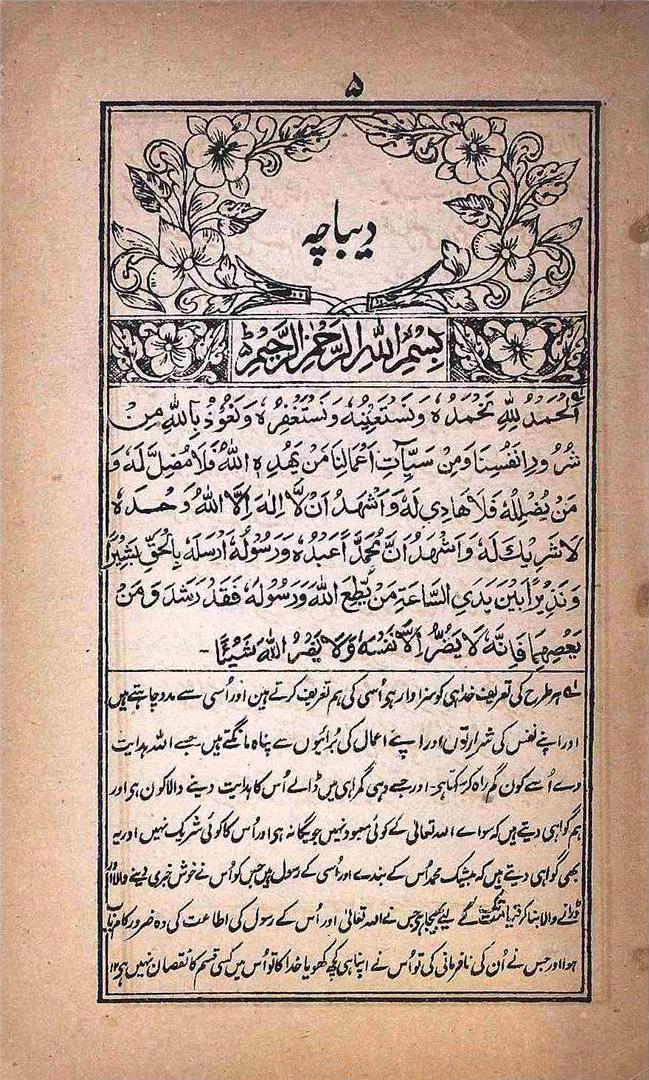 ۵
دیباچہ
بِسْمِ اللّٰهِ الرَّحْمٰنِ الرَّحِيْمِ
اَلْحَمْدُ لِلّٰهِ نَحْمَدُهٗ وَنَسْتَعِيْنُهٗ وَنَسْتَغْفِرُهٗ وَنَعُوْذُ بِاللّٰهِ مِنْ
شُرُوْرِ اَنْفُسِنَا وَمِنْ سَيِّاٰتِ اَعْمَالِنَا مَنْ يَّهْدِهِ اللّٰهُ فَلَا مُضِلَّ لَهٗ وَ
مَنْ يُّضْلِلْهُ فَلَا هَادِيَ لَهٗ وَاَشْهَدُ اَنْ لَّا اِلٰهَ اِلَّا اللّٰهُ وَحْدَهٗ
لَا شَرِيْكَ لَهٗ وَاَشْهَدُ اَنَّ مُحَمَّدًا عَبْدُهٗ وَرَسُوْلُهٗ اَرْسَلَهٗ بِالْحَقِّ بَشِيْرًا
وَّنَذِيْرًا بَيْنَ يَدَىِ السَّاعَةِ مَنْ يُّطِعِ اللّٰهَ وَرَسُوْلَهٗ فَقَدْ رَشَدَ وَمَنْ
يَّعْصِهِمَا فَاِنَّهٗ لَا يَضُرُّ اِلَّا نَفْسَهٗ وَلَا يَضُرُّ اللّٰهَ شَيْئًا۔
لے ہر طرح کی تعریف خدا ہی کو سزاوار ہو اُسی کی ہم تعریف کرتے ہین اور اُسی سے مدد چاہتے ہیں
اور اپنے نفس کی شرارتوں اور اپنے اعمال کی بُرائیوں سے پناہ مانگتے ہیں۔ جسے اللہ ہدایت
دے اُسے کون گم راہ کر سکتا ہو۔ اور جسے وہی گمراہی میں ڈالے اُس کا ہدایت دینے والا کون ہو اور
ہم گواہی دیتے ہیں کہ سواے اللہ تعالیٰ کے کوئی معبود نہیں جو یگانہ ہو اور اُس کا کوئی شریک نہیں اور یہ
بھی گواہی دیتے ہیں کہ بیشک محمد اُس کے بندے اور اُسی کے رسول ہیں جس کو اُس نے خوش خبری دینے والا اور
ڈرانے والا بنا کر قیامت تک کے لیے بھیجا ہو جس نے اللہ تعالیٰ اور اُس کے رسول کی اطاعت کی وہ ضرور کامیاب
ہوا اور جس نے اُن کی نافرمانی کی تو اُس نے اپنا ہی کچھ کھویا خدا کا تو اُس میں کسی قسم کا نقصان نہیں ہو ۱۲